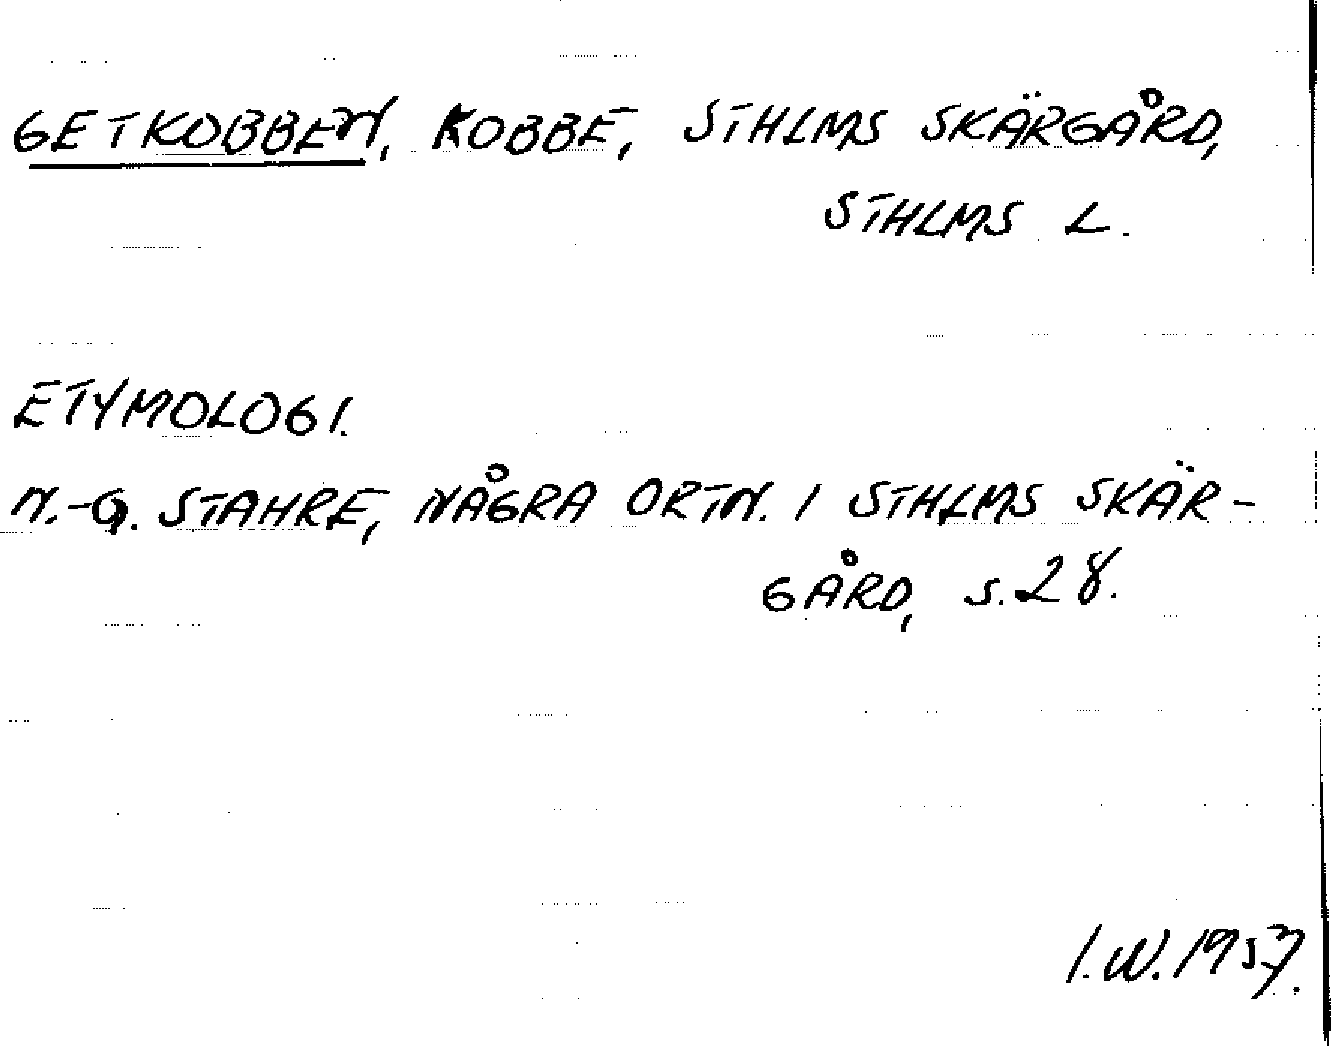 GETKOBBEN, KOBBE, STHLMS SKÄRGÅRD,
STHLMS L.
ETYMOLOGI.
N.-G. STAHRE, NÅGRA ORTN. I STHLMS SKÄR-
GÅRD, s. 28.
I.W. 1957.